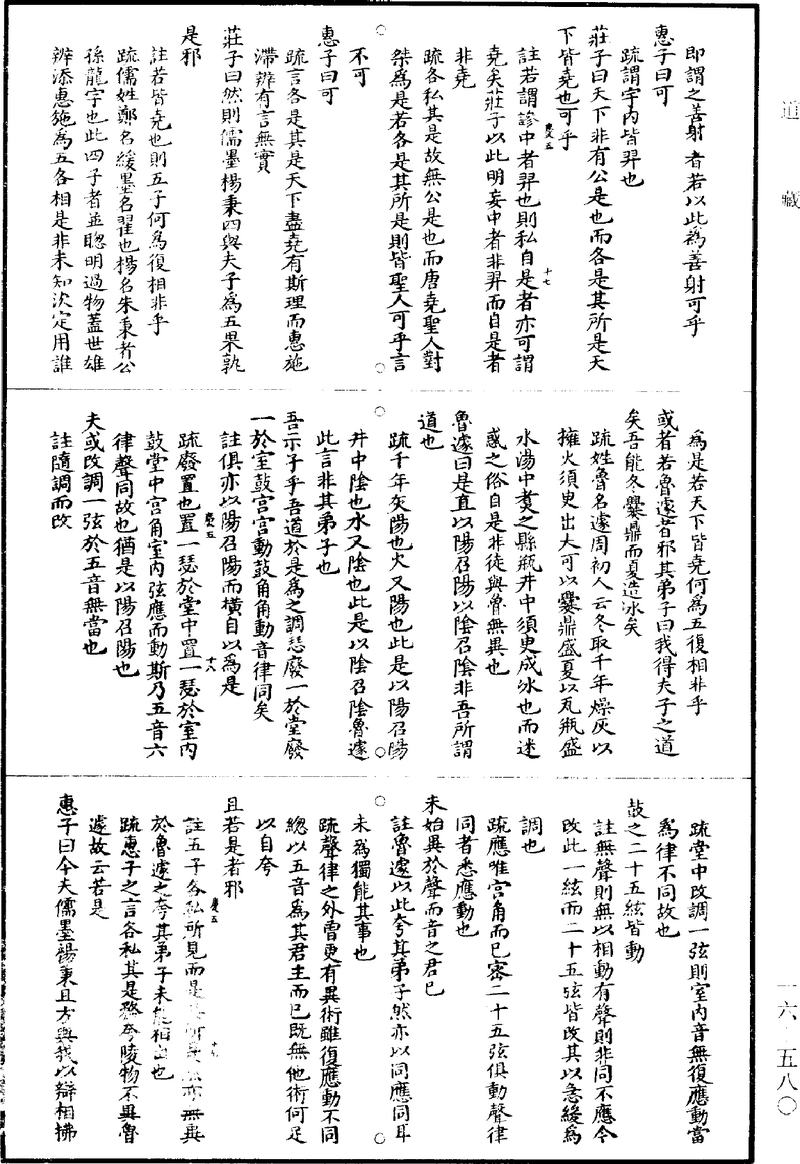 道藏
即謂之善射者若以此為善射可乎
惠子曰可
疏謂宇內皆羿也
莊子曰天下非有公是也而各是其所是天
下皆堯也可乎
慶五
註若謂謬中者羿也則私自是者亦可謂
十七
堯矣莊子以此明妄中者非羿而自是者
非堯
疏各私其是故無公是也而唐堯聖人對
桀為是若各是其所是則皆聖人可乎言
不可
惠子曰可
疏言各是其是天下盡堯有斯理而惠施
滯辨有言無實
莊子曰然則儒墨楊秉四與夫子為五果孰
是邪
註若皆堯也則五子何為復相非乎
疏儒姓鄭名緩墨名翟也楊名朱秉者公
孫龍字也此四子者並聰明過物蓋世雄
辨添惠施為五各相是非未知決定用誰
為是若天下皆堯何為五復相非乎
或者若魯遽者邪其弟子曰我得夫子之道
矣吾能冬爨鼎而夏造冰矣
疏姓魯名遽周初人云冬取千年燥灰以
擁火須臾出大可以爨鼎盛夏以瓦瓶盛
水湯中煑之縣瓶井中須臾成冰也而迷
惑之俗自是非徒與魯無異也
魯遽曰是直以陽召陽以陰召陰非吾所謂
道也
疏千年灰陽也火又陽也此是以陽召陽
井中陰也水又陰也此是以陰召陰魯遽
此言非其弟子也
吾示子乎吾道於是為之調瑟廢一於堂廢
一於室鼓宮宮動鼓角角動音律同矣
註俱亦以陽召陽而橫自以為是
慶五
十八
疏廢置也置一瑟於堂中置一瑟於室內
鼓堂中宮角室內弦應而動斯乃五音六
律聲同故也猶是以陽召陽也
夫或改調一弦於五音無當也
註隨調而改
疏堂中改調一弦則室內音無復應動當
為律不同故也
鼓之二十五絃皆動
註無聲則無以相動有聲則非同不應今
改此一絃而二十五弦皆改其以急緩為
調也
疏應唯宮角而已審二十五弦俱動聲律
同者悉應動也
未始異於聲而音之君已
註魯遽以此夸其弟子然亦以同應同耳
未為獨能其事也
疏聲律之外曾更有異術雖復應動不同
總以五音為其君主而已既無他術何足
以自夸
且若是者邪
慶五
註五子各私所見而是其所是然亦無異
於魯遽之夸其弟子未能相出也
疏惠子之言各私其是務夸陵物不異魯
遽故云若是
惠子曰今夫儒墨楊秉且方與我以辯相拂
一六·五八〇